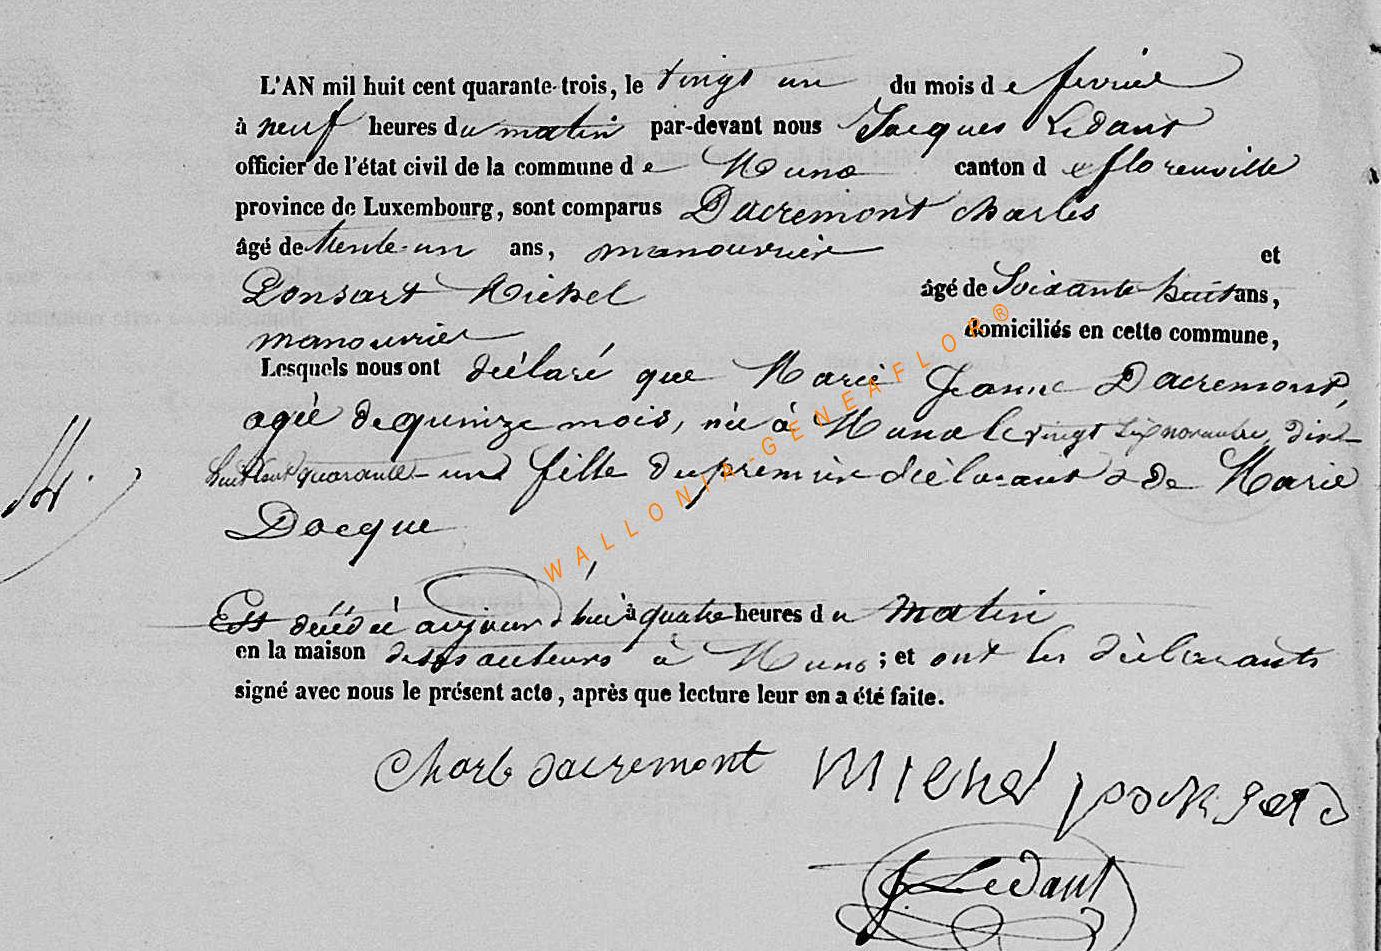 L'AN mil huit cent quarante-trois, le vingt un du mois de fevrier
à neuf heures du matin par-devant nous Jacques Ledant
officier de l'état civil de la commune de Muno canton de florenville
province de Luxembourg, sont comparus Dacremont charles
âgé de trente-un ans, manouvrier et
Ponsart Michel âgé de Soixante huit ans,
manouvrier domiciliés en cette commune,
Lesquels nous ont déclaré que Marie Jeanne Dacremont,
agée de quinze mois, née à Muno le vingt six novembre, dix-
huit cent quarante-un fille du premier déclarant & de Marie
Docque
Est décédée aujourd'hui à quatre heures du matin
en la maison de ses auteurs à Muno ; et ont les déclarants
signé avec nous le présent acte, après que lecture leur en a été faite.
Charles dacremont Michel ponsard
J Ledant
WALLONIA-GENEAFLOR®